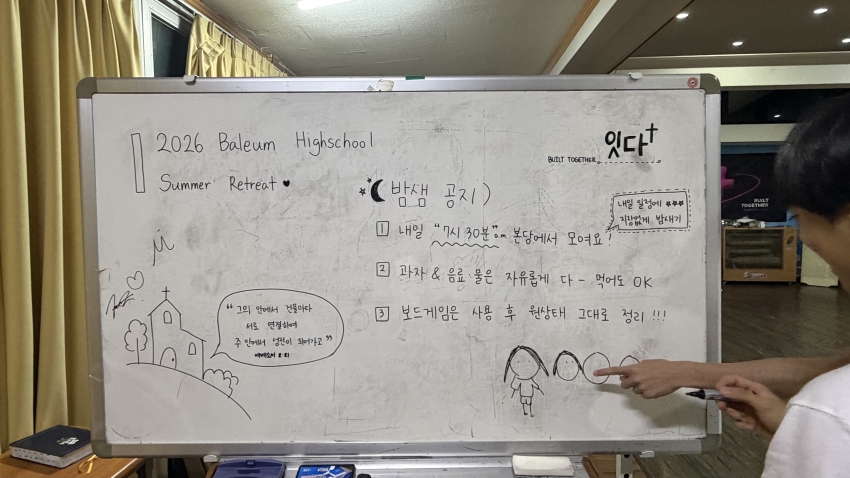 2026 Baleum Highschool
Summer Retreat
BUILT TOGETHER
잇다
밤샘 공지)
내일 일정에
지장없게 밤새기
1 내일 "7시 30분"am 본당에서 모여요!
2 과자 & 음료·물은 자유롭게 다- 먹어도 OK
3 보드게임은 사용 후 원상태 그대로 정리 !!!
"그의 안에서 건물마다
서로 연결하여
주 안에서 성전이 되어가고"
에베소서 2:21
BUILT
TOGETHER